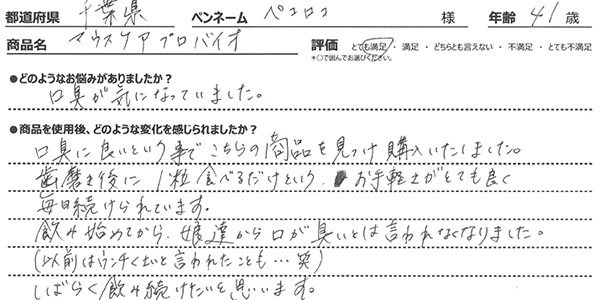 都道府県 千葉県 ペンネーム ペコロコ 様 年齢 41 歳
商品名 マウスケアプロバイオ 評価 とても満足 ・ 満足 ・ どちらとも言えない ・ 不満足 ・ とても不満足
*○で囲んでお選びください。
●どのようなお悩みがありましたか?
口臭が気になっていました。
●商品を使用後、どのような変化を感じられましたか?
口臭に良いという事でこちらの商品を見つけ購入いたしました。
歯磨き後に1粒食べるだけという お手軽さがとても良く
毎日続けられています。
飲み始めてから、娘達から口が臭いとは言われなくなりました。
(以前はウンチくさいと言われたことも…笑)
しばらく飲み続けたいと思います。